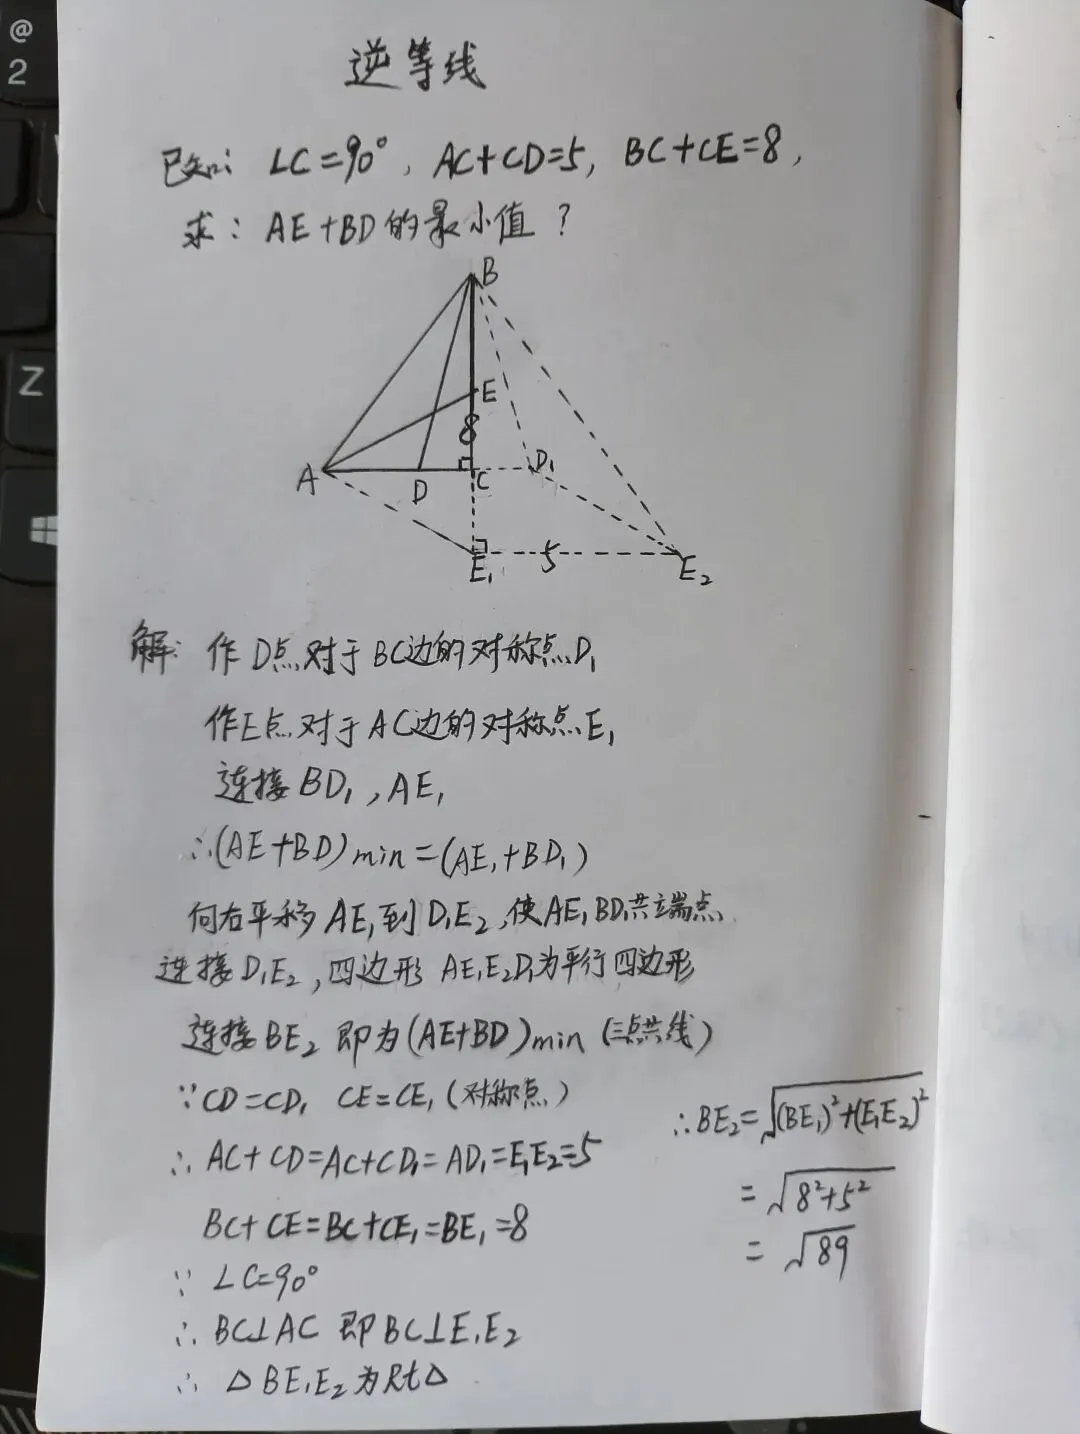 @
2
Z
逆等线
已知: ∠C=90°, AC+CD=5, BC+CE=8,
求: AE+BD的最小值?
B
E
8
A
D
C
D₁
E₁
5
E₂
解: 作D点对于BC边的对称点D₁
作E点对于AC边的对称点E₁
连接BD₁, AE₁
∴(AE+BD)min=(AE₁+BD₁)
向右平移AE₁到D₁E₂,使AE₁BD₁共端点
连接D₁E₂, 四边形AE₁E₂D₁为平行四边形
连接BE₂ 即为(AE+BD)min (三点共线)
∵CD=CD₁ CE=CE₁(对称点)
∴AC+CD=AC+CD₁=AD₁=E₁E₂=5
BC+CE=BC+CE₁=BE₁=8
∵ ∠C=90°
∴ BC⊥AC 即BC⊥E₁E₂
∴ △BE₁E₂为Rt△
∴BE₂=√(BE₁)²+(E₁E₂)²
=√8²+5²
=√89